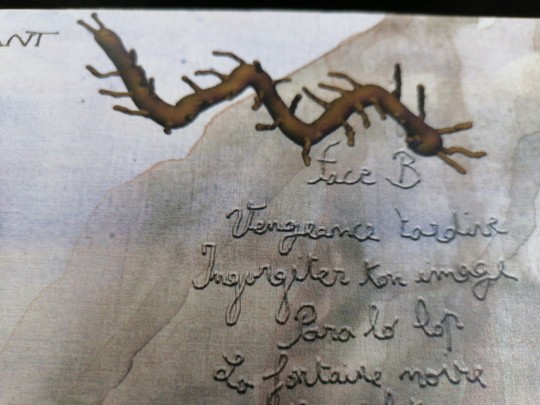 ANT
Face B
Vengeance tardive
Ingurgiter ton image
Para lo lop
La fontaine noire